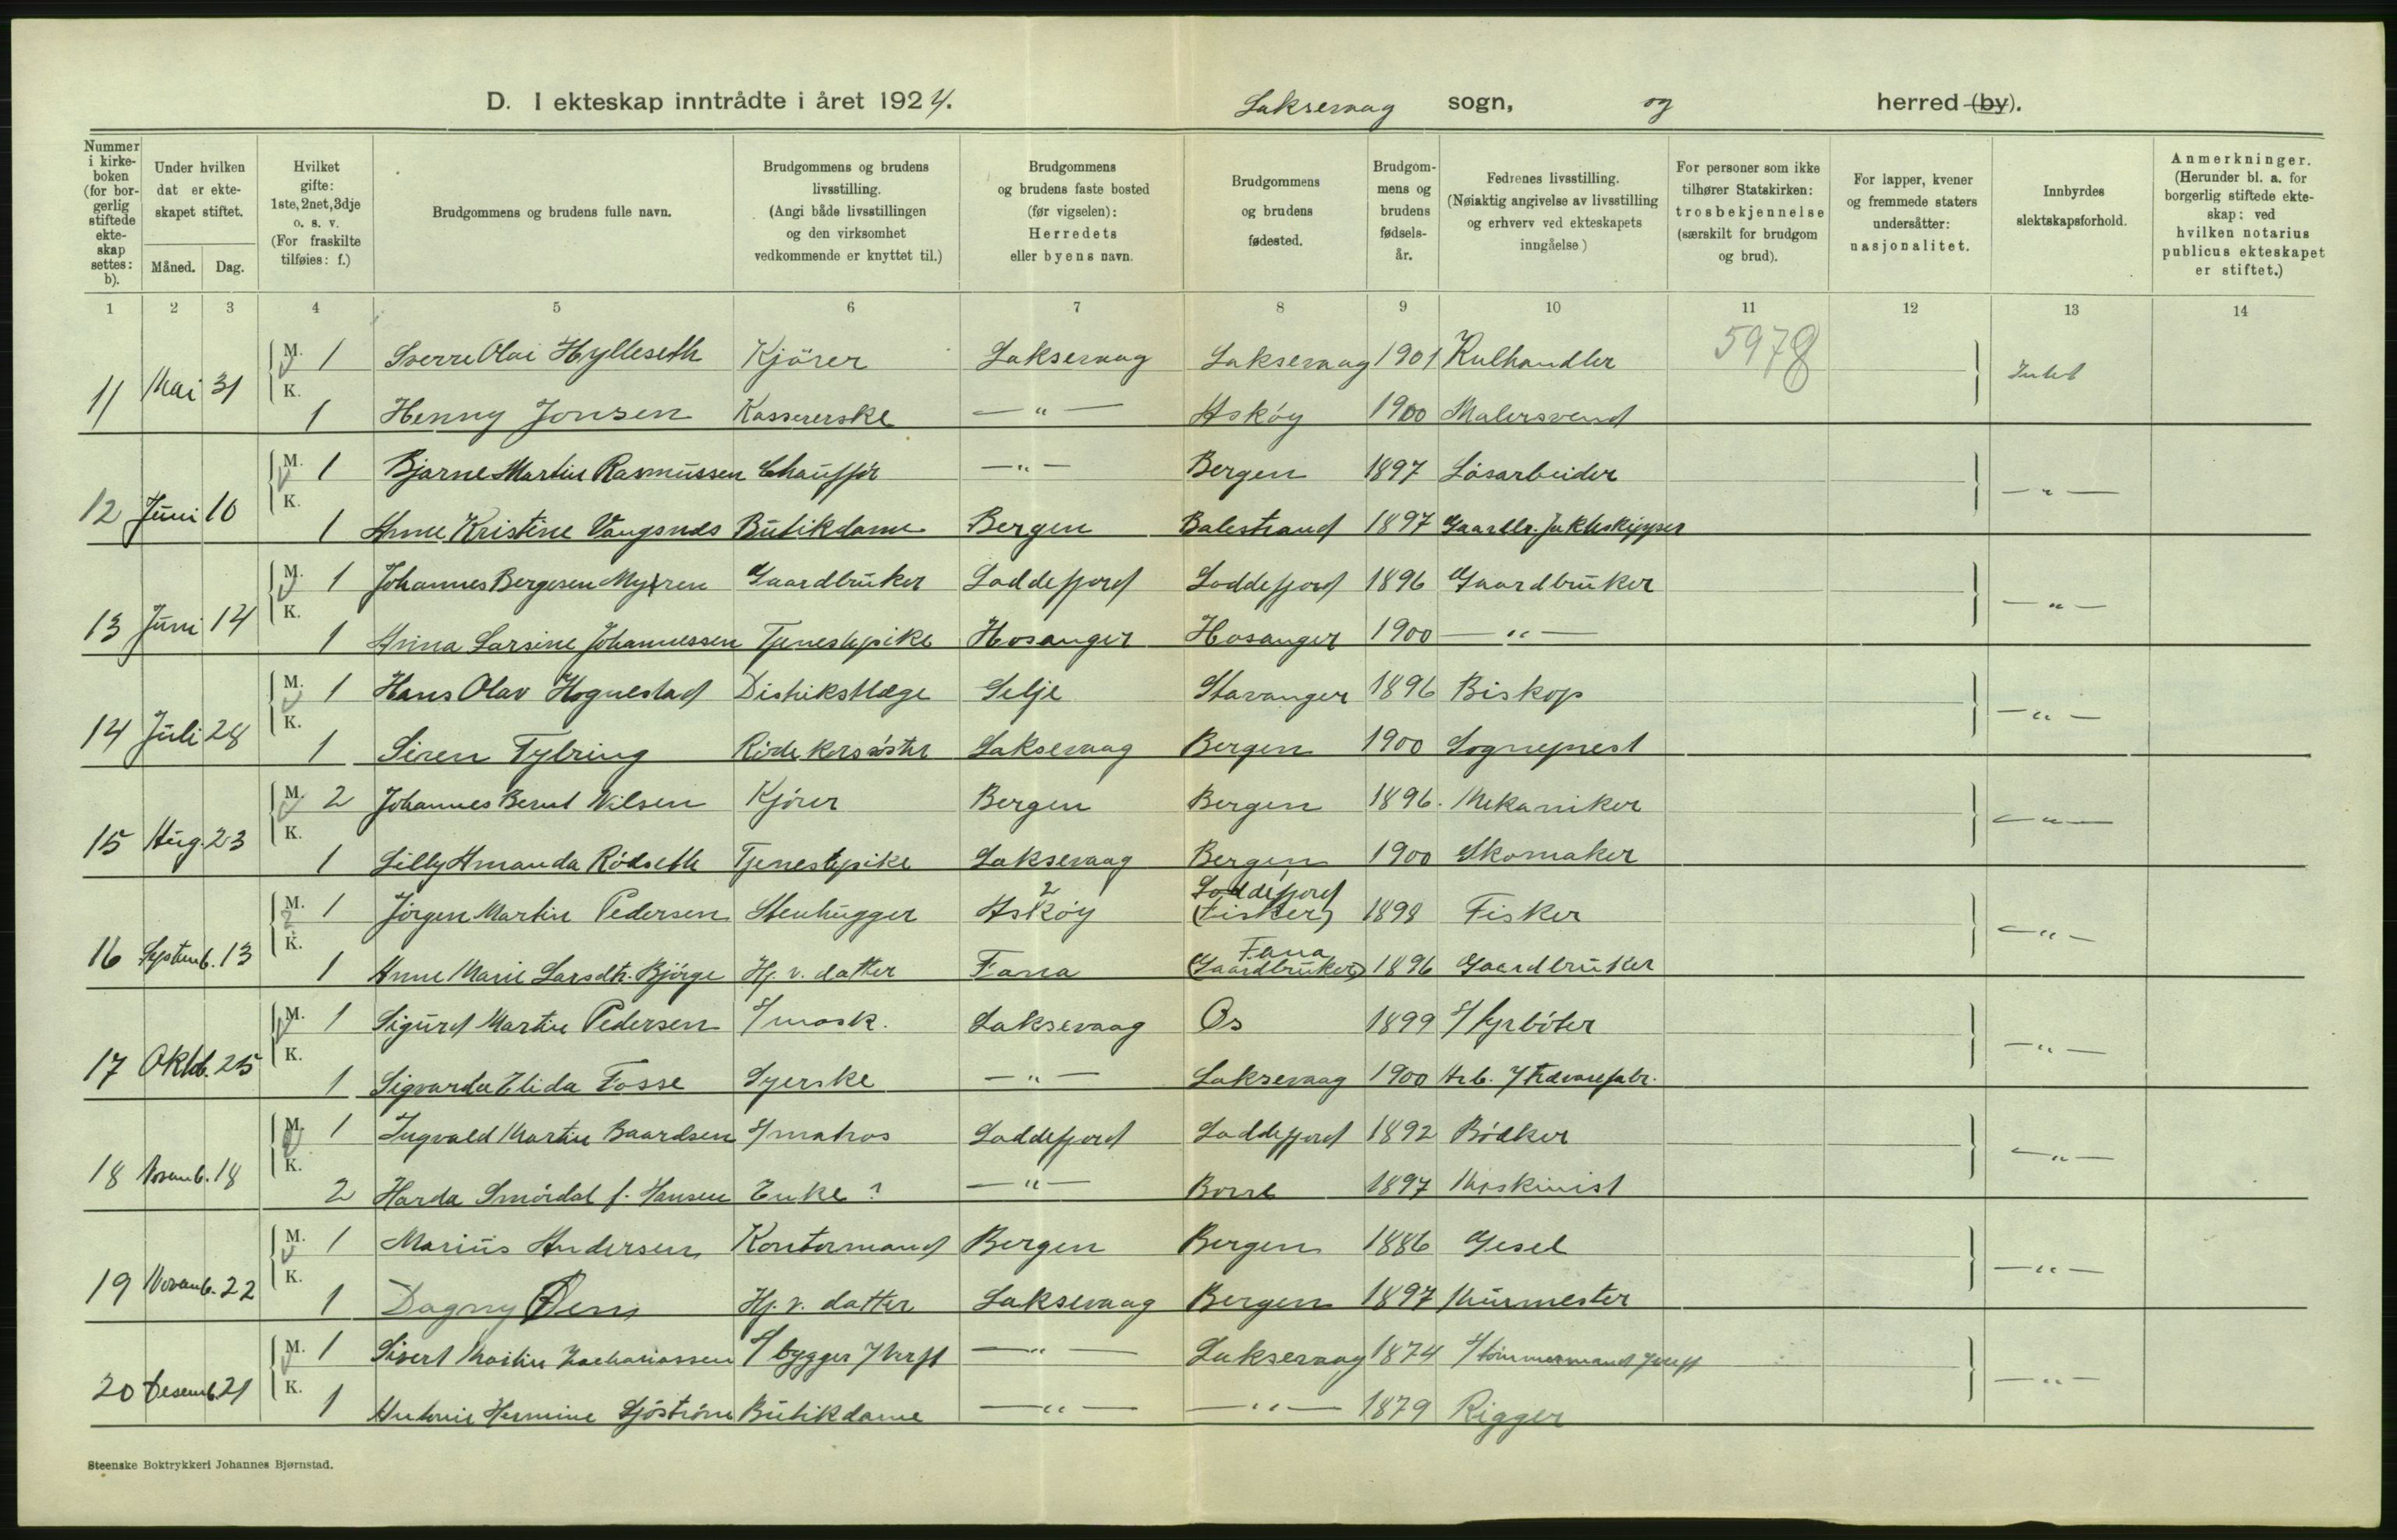 D. I ekteskap inntrådte i året 1924. Laksevaag sogn, og herred (by).
Nummer i kirkeboken (for borgerlig stiftede ekteskap settes: b).
Under hvilken dat er ekteskapet stiftet.
Måned. Dag.
Hvilket gifte: 1ste, 2net, 3dje o. s. v. (For fraskilte tilføies: f.)
Brudgommens og brudens fulle navn.
Brudgommens og brudens livsstilling. (Angi både livsstillingen og den virksomhet vedkommende er knyttet til.)
Brudgommens og brudens faste bosted (før vigselen): Herredets eller byens navn.
Brudgommens og brudens fødested.
Brudgommens og brudens fødselsår.
Fedrenes livsstilling. (Nøiaktig angivelse av livsstilling og erhverv ved ekteskapets inngåelse)
For personer som ikke tilhører Statskirken: trosbekjennelse (særskilt for brudgom og brud).
For lapper, kvener og fremmede staters undersåtter: nasjonalitet.
Innbyrdes slektskapsforhold.
Anmerkninger. (Herunder bl. a. for borgerlig stiftede ekteskap: ved hvilken notarius publicus ekteskapet er stiftet.)
1 2 3 4 5 6 7 8 9 10 11 12 13 14
11 Mai 31 M. 1 Sverre Olai Hylleseth Kjörer Laksevaag Laksevaag 1901 Kulhandler 5978 Intet
K. 1 Henny Jonsen Kassererske — " — Askøy 1900 Malersvend
12 Juni 10 M. 1 Bjarne Martin Rasmussen Chauffør — " — Bergen 1897 Løsarbeider — " —
K. 1 Anne Kristine Vangsnes Butikdame Bergen Balestrand 1897 Gaardbr. Jakteskipper
13 Juni 14 M. 1 Johannes Bergesen Myren Gaardbruker Loddefjord Loddefjord 1896 Gaardbruker — " —
K. 1 Anna Larsine Johannessen Tjenestepike Hosanger Hosanger 1900 — " —
14 Juli 28 M. 1 Hans Olav Hognestad Distriktslæge Selje Stavanger 1896 Biskop — " —
K. 1 Siren Fylling Røde korssøster Laksevaag Bergen 1900 Sogneprest
15 Aug. 23 M. 2 Johannes Bernt Nilsen Kjörer Bergen Bergen 1896. Mekaniker — " —
K. 1 Lilly Amanda Rödseth Tjenestepike Laksevaag Bergen 1900 Skomaker
16 Septemb. 13 M. 1 Jörgen Martin Pedersen Stenhugger Askøy Loddefjord (Fisker) 1898 Fisker — " —
K. 1 Anne Marie Larsdtr. Björge Hj. v. datter Fana Fana (Gaardbruker) 1896 Gaardbruker
17 Oktb. 25 M. 1 Sigurd Martin Pedersen S/mask. Laksevaag Os 1899 S/fyrböter — " —
K. 1 Sigvarda Elida Fosse Syerske — " — Laksevaag 1900 Arb. / Trævarefabr.
18 Novemb. 18 M. 1 Ingvald Martin Baardsen S/matros Loddefjord Loddefjord 1892 Bödker — " —
K. 2 Harda Smördal f. Hansen Enke ? — " — Borre 1897 Maskinist
19 Novemb. 22 M. 1 Marius Andersen Kontormand Bergen Bergen 1886 Gesel — " —
K. 1 Dagny Øen Hj. v. datter Laksevaag Bergen 1897 Murmester
20 Desemb. 21 M. 1 Sivert Martin Zachariassen S/bygger / Verft — " — Laksevaag 1874 S/tömmermand / verft — " —
K. 1 Antonie Hermine Sjöström Butikdame — " — — " — 1879 Rigger
Steenske Boktrykkeri Johannes Bjørnstad.